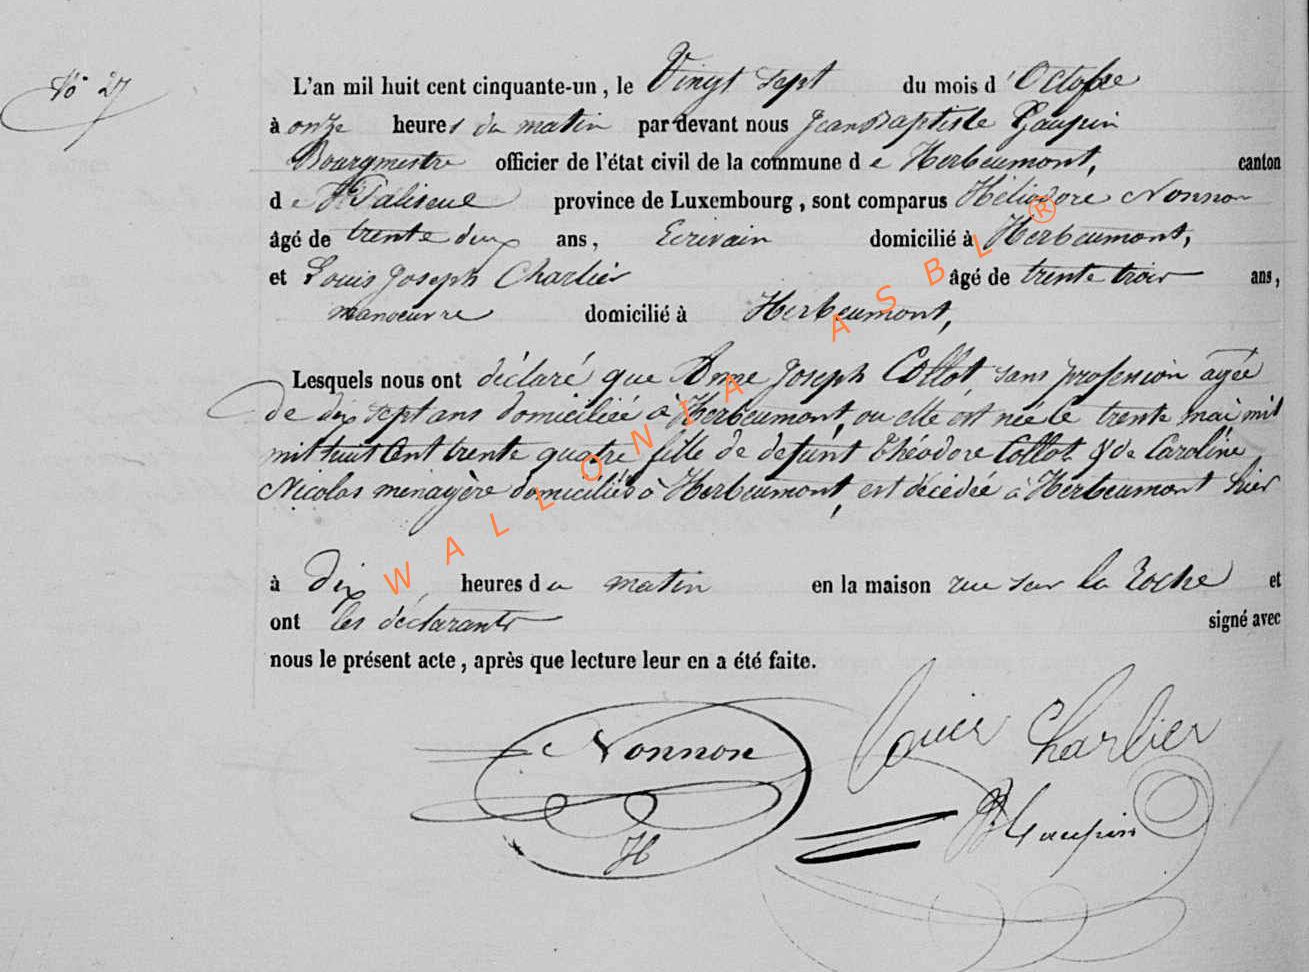 No 27
L'an mil huit cent cinquante-un, le Vingt sept du mois d'Octobre
à onze heures du matin par devant nous Jean Baptiste Gaupin
Bourgmestre officier de l'état civil de la commune de Herbeumont, canton
de Paliseul province de Luxembourg, sont comparus Héliodore Nonnon
âgé de trente deux ans, Ecrivain domicilié à Herbeumont,
et Louis Joseph Charlier âgé de trente trois ans,
manoeuvre domicilié à Herbeumont,
Lesquels nous ont déclaré que Anne Joseph Collot sans profession agée
de dix sept ans domiciliée à Herbeumont, ou elle est née le trente mai mil
mil huit Cent trente quatre fille de defunt Théodore Collot & de Caroline
Nicolas menagère domiciliés à Herbeumont, est décédée à Herbeumont hier
à dix heures du matin en la maison rue sur la Roche et
ont les déclarants signé avec
nous le présent acte, après que lecture leur en a été faite.
Nonnon
H
Louis Charlier
Gaupin
WALLONIA ASBL ®